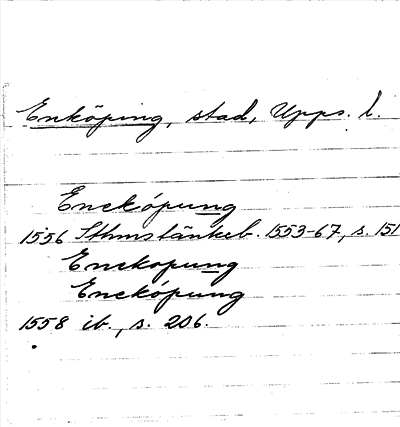 Enköping, stad, Upps. l.
Enekópung
1556 Sthms tänkeb. 1553-67, s. 151
Enekopung
Enekópung
1558 ib., s. 206.